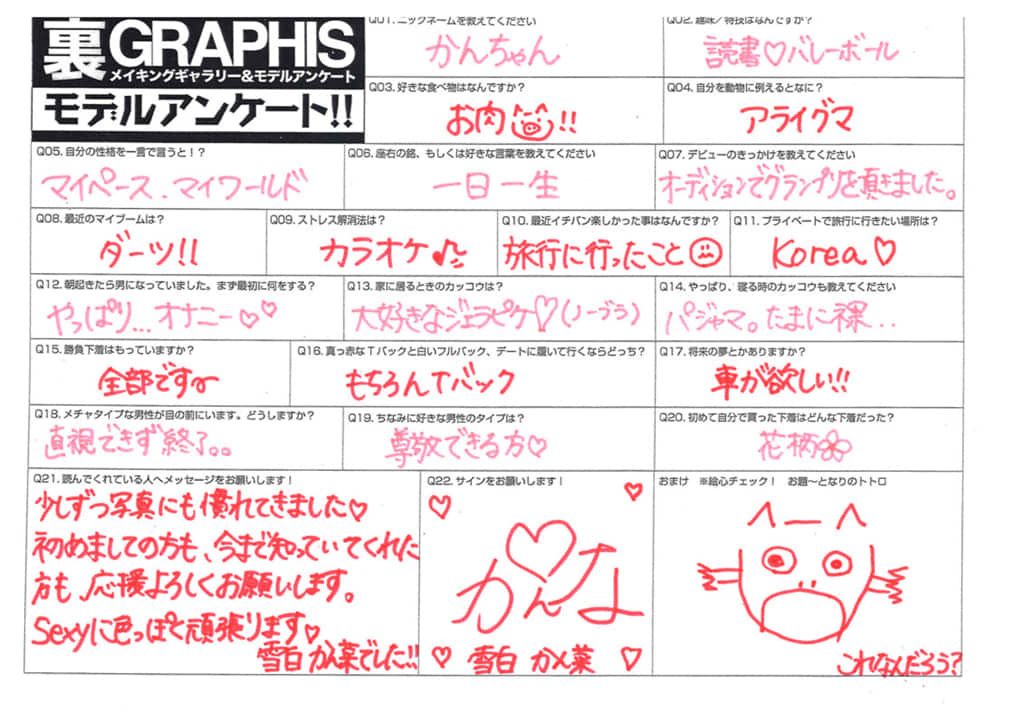 裏GRAPHIS
メイキングギャラリー&モデルアンケート
モデルアンケート!!
Q01. ニックネームを教えてください
かんちゃん
Q02. 趣味/特技はなんですか?
読書♡バレーボール
Q03. 好きな食べ物はなんですか?
お肉!!
Q04. 自分を動物に例えるとなに?
アライグマ
Q05. 自分の性格を一言で言うと!?
マイペース、マイワールド
Q06. 座右の銘、もしくは好きな言葉を教えてください
一日一生
Q07. デビューのきっかけを教えてください
オーディションでグランプリを頂きました。
Q08. 最近のマイブームは?
ダーツ!!
Q09. ストレス解消法は?
カラオケ♪
Q10. 最近イチバン楽しかった事はなんですか?
旅行に行ったこと
Q11. プライベートで旅行に行きたい場所は?
Korea♡
Q12. 朝起きたら男になっていました。まず最初に何をする?
やっぱり...オナニー♡♡
Q13. 家に居るときのカッコウは?
大好きなジェラピケ♡(ノーブラ)
Q14. やっぱり、寝る時のカッコウも教えてください
パジャマ。たまに裸..
Q15. 勝負下着はもっていますか?
全部です
Q16. 真っ赤なTバックと白いフルバック、デートに履いて行くならどっち?
もちろんTバック
Q17. 将来の夢とかありますか?
車が欲しい!!
Q18. メチャタイプな男性が目の前にいます。どうしますか?
直視できず終了。。
Q19. ちなみに好きな男性のタイプは?
尊敬できる方♡
Q20. 初めて自分で買った下着はどんな下着だった?
花柄
Q21. 読んでくれている人へメッセージをお願いします!
少しずつ写真にも慣れてきました♡
初めましての方も、今まで知っていてくれた
方も、応援よろしくお願いします。
Sexyに色っぽく頑張ります♡
雪白 かん菜でした!!
Q22. サインをお願いします!
かんな
♡ 雪白 かん菜 ♡
おまけ ※絵心チェック! お題〜となりのトトロ
これなんだろう?